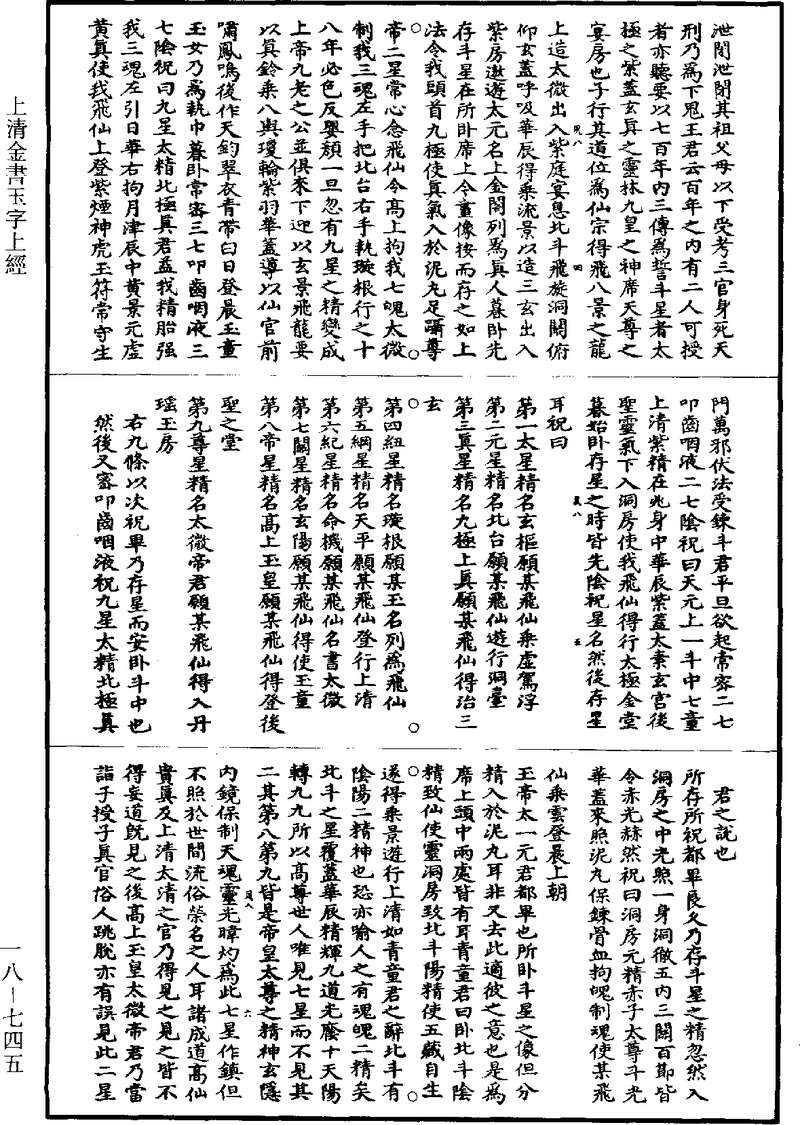 上清金書玉字上經
泄閇泄閇其祖父母以下受考三官身死天
刑乃為下鬼王君云百年之內有二人可授
者亦聽要以七百年內三傳為誓斗星者太
極之紫蓋玄真之靈牀九皇之神席天尊之
宴房也子行其道位為仙宗得飛八景之龍
上造太微出入紫庭宴息北斗飛旋洞閞俯
仰玄蓋呼吸華辰得乘流景以造三玄出入
紫房遨遊太元名上金閣列為真人暮卧先
存斗星在所卧席上令畫像按而存之如上
法令我頭首九極使真氣入於泥丸足躡尊
帝二星常心念飛仙令髙上拘我七魄太微
制我三魂左手把北台右手執璇根行之十
八年必色反嬰顏一旦忽有九星之精變成
上帝九老之公並俱來下迎以玄景飛龍要
以真鈴乘八輿瓊輪紫羽華蓋導以仙官前
嘯鳳鳴後作天鈞翠衣青帶曰日登晨玉童
玉女乃為執巾暮卧常密三七叩齒咽液三
七陰祝曰九星太精北極真君益我精胎强
我三魂左引日華右拘月津辰中黄景元虛
黄真使我飛仙上登紫煙神虎玉符常守生
門萬邪伏法受鍊斗君平旦欲起常密二七
叩齒咽液二七陰祝曰天元上一斗中七童
上清紫精在兆身中華辰紫蓋太素玄宮後
聖靈氣下入洞房使我飛仙得行太極金堂
暮始卧存星之時皆先陰祝星名然後存星
耳祝曰
第一太星精名玄樞願某飛仙乘虛駕浮
第二元星精名北台願某飛仙遊行洞臺
第三真星精名九極上真願某飛仙得治三
玄
第四紐星精名璇根願某玉名列為飛仙
第五綱星精名天平願某飛仙登行上清
第六紀星精名命機願某飛仙名書太微
第七關星精名玄陽願某飛仙得使玉童
第八帝星精名髙上玉皇願某飛仙得登後
聖之堂
第九尊星精名太微帝君願某飛仙得入丹
瑶玉房
右九條以次祝畢乃存星而安卧斗中也
然後又密叩齒咽液祝九星太精北極真
君之說也
所存所祝都畢良久乃存斗星之精忽然入
洞房之中光照一身洞徹五內三關百節皆
令赤光赫然祝曰洞房元精赤子太尊斗光
華蓋來照泥丸保鍊骨血拘魄制魂使某飛
仙乘雲登晨上朝
玉帝太一元君都畢也所卧斗星之像但分
精入於泥丸耳非又去此適彼之意也是為
席上頭中兩處皆有耳青童君曰卧北斗陰
精致仙使靈洞房致北斗陽精使五藏自生
遂得乘景遊行上清如青童君之辭北斗有
陰陽二精神也恐亦喻人之有魂魄二精矣
北斗之星覆蓋華辰精輝九道光麗十天陽
轉九九所以髙尊世人唯見七星而不見其
二其第八第九皆是帝皇太尊之精神玄隱
內鏡保制天魂靈光暐灼為此七星作鎮但
不照於世間流俗榮名之人耳諸成道髙仙
貴真及上清太清之官乃得見之見之皆不
得妄道旣見之後髙上玉皇太微帝君乃當
詣子授子真官俗人跳脫亦有誤見此二星
一八－七四五